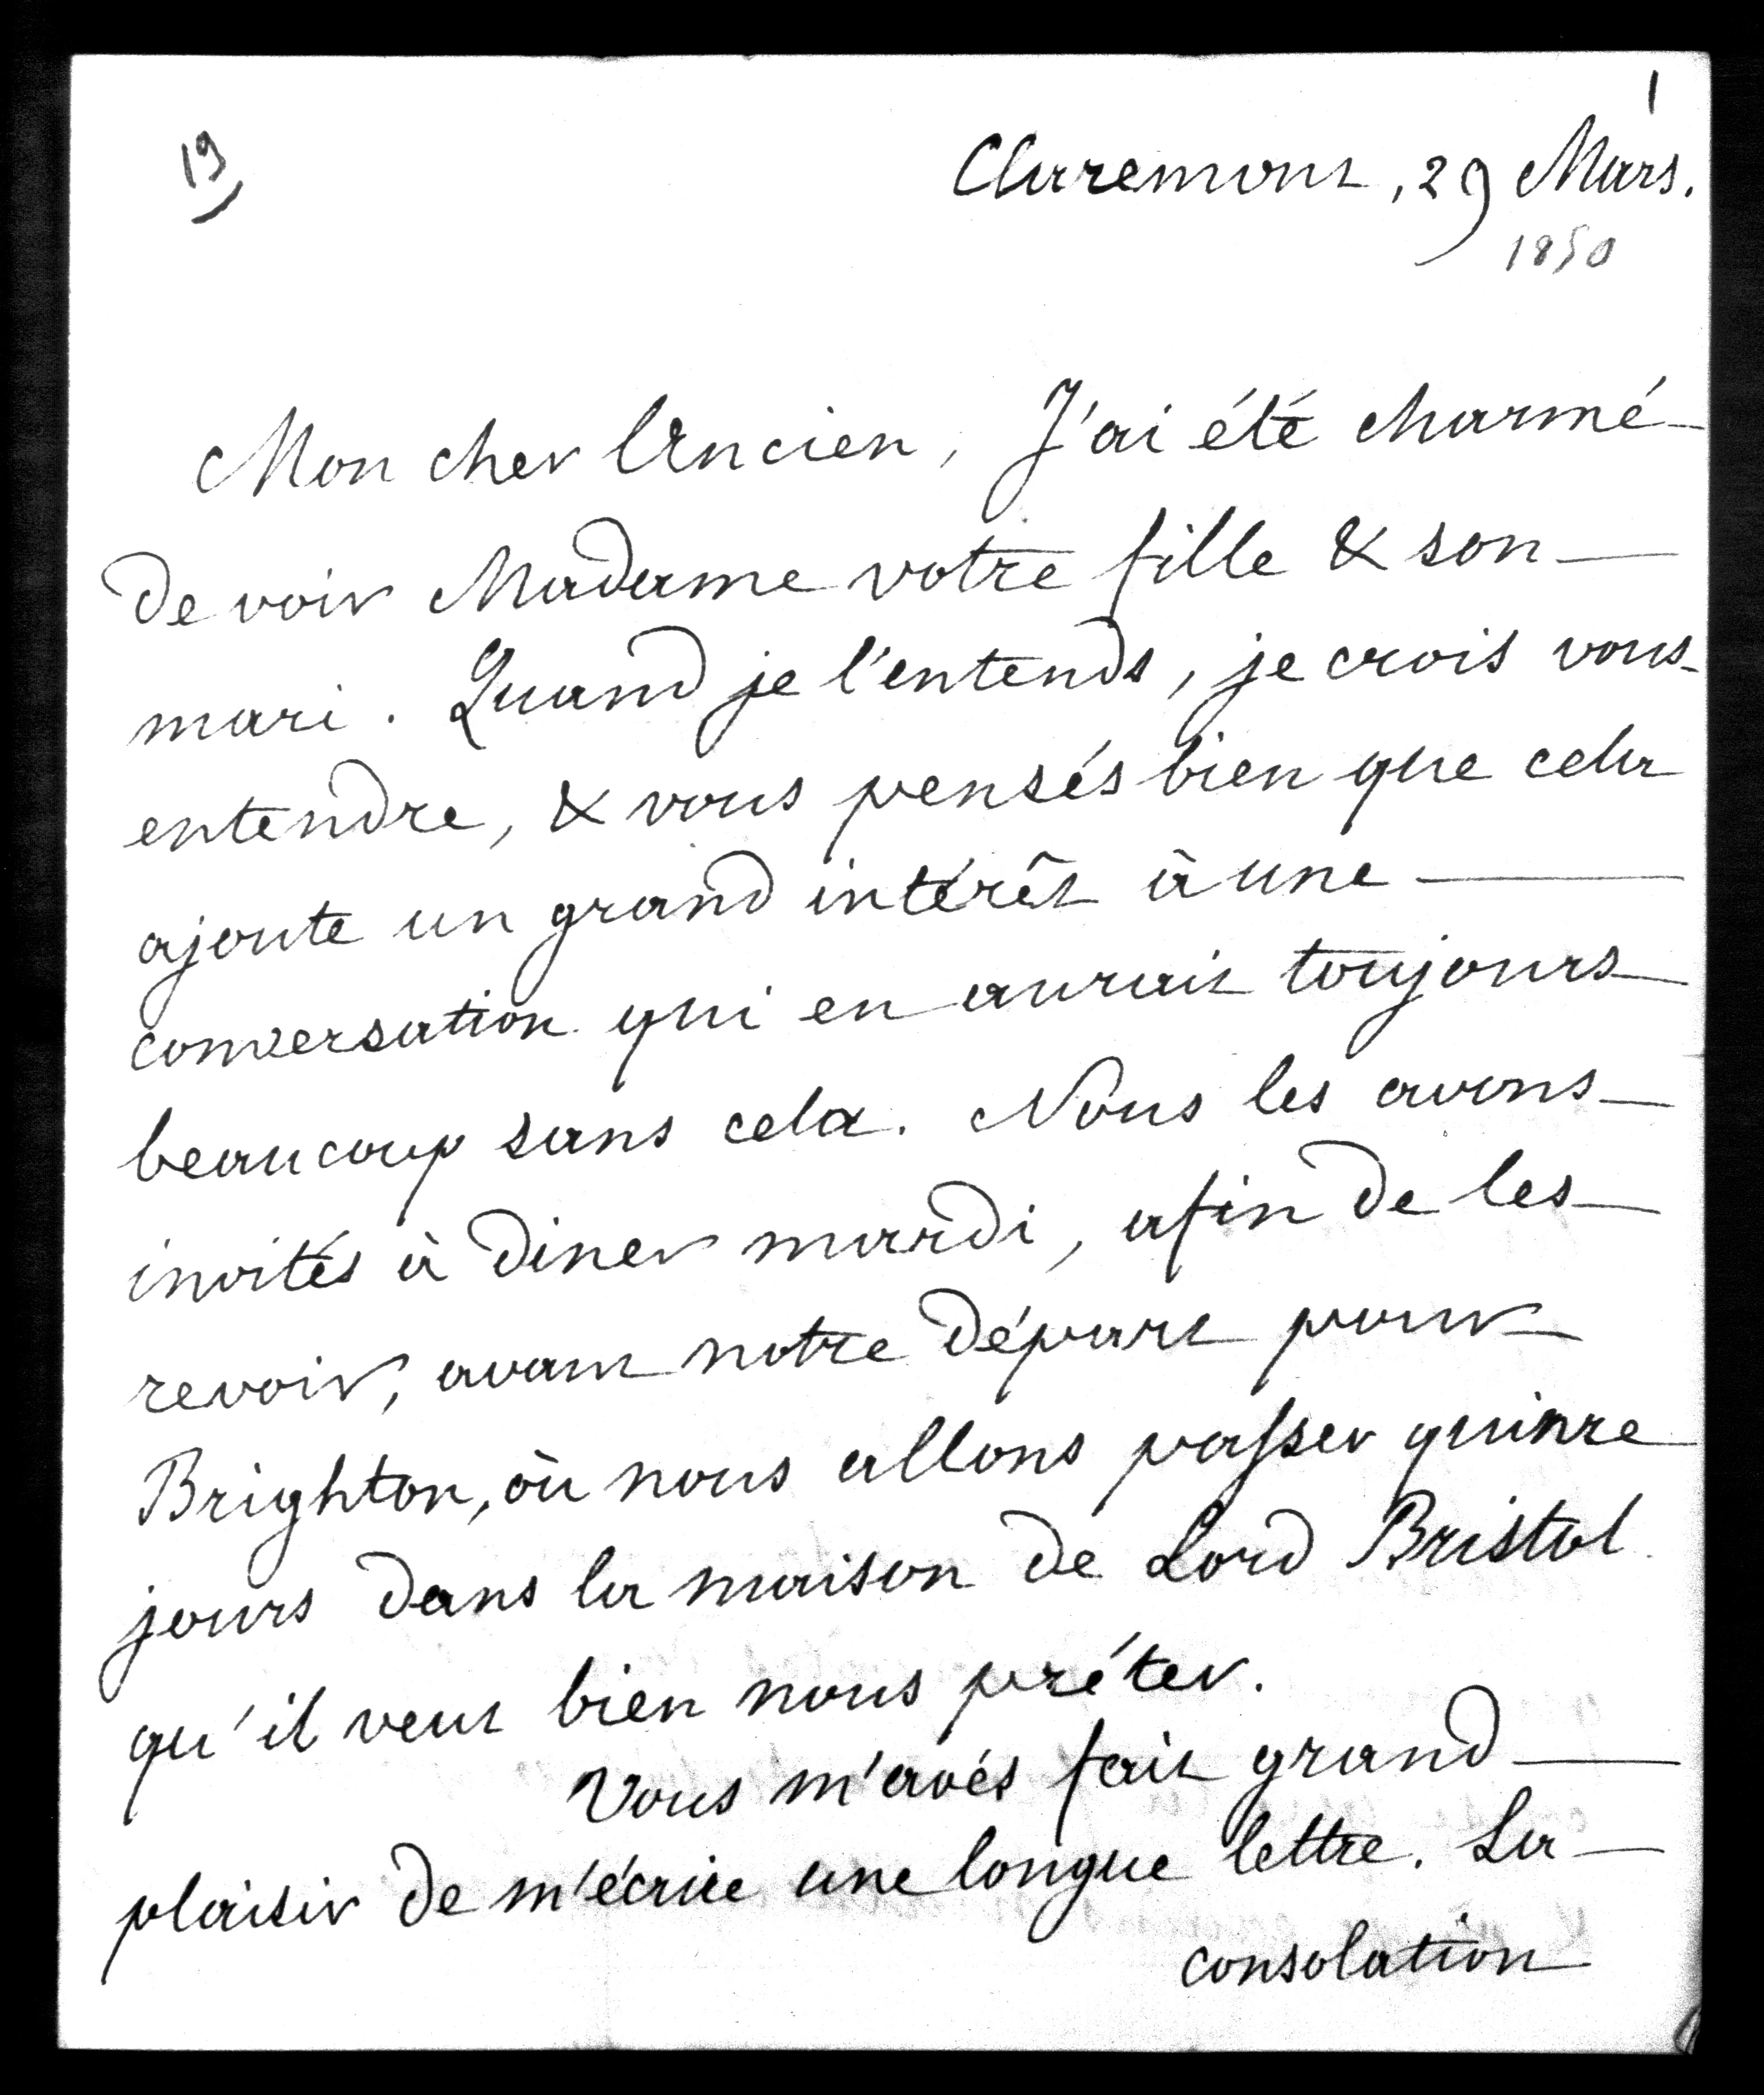 1
19
Claremont, 29 Mars.
1850
Mon cher Ancien, J'ai été charmé
de voir Madame votre fille & son
mari. Quand je l'entends, je crois vous
entendre, & vous pensés bien que cela
ajoute un grand intérêt à une
conversation qui en aurait toujours
beaucoup sans cela. Nous les avons
invités à diner mardi, afin de les
revoir, avant notre départ pour
Brighton, où nous allons passer quinze
jours dans la maison de Lord Bristol
qu'il veut bien nous préter.
Vous m'avés fait grand
plaisir de m'écrire une longue lettre. La
consolation